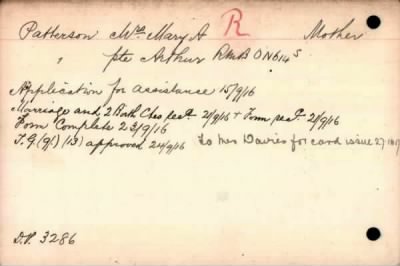 Patterson Mrs Mary A R Mother
" Pte Arthur RMB ON614S
Application for assistance 15/9/16
Marriage and 2 Birth Ctes recd 21/9/16 + Form recd 21/9/16
Form Complete 23/9/16
(13) approved 24/9/16 To Mrs Davies for card issue 27
D.P. 3286